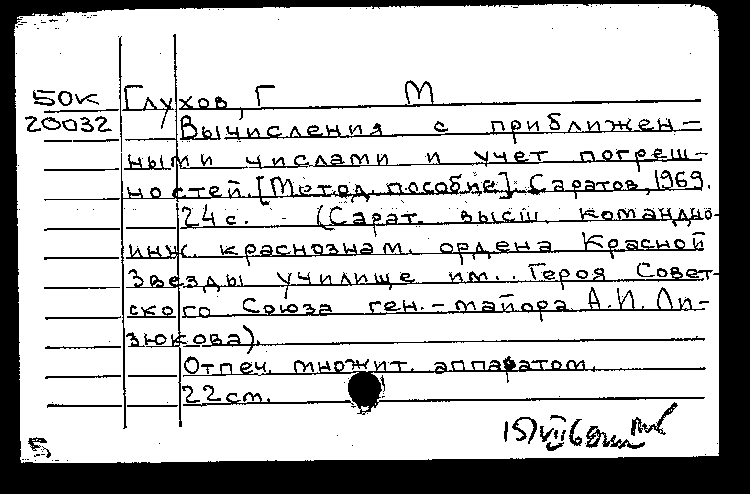 50К Глухов, Г М
20032 Вычисления с приближен=
ными числами и учет погреш-
ностей. [Метод. пособие]. Саратов, 1969.
24 с. (Сарат. высш. командно-
инж. краснознам. ордена Красной
Звезды училище им.. Героя Совет-
ского Союза ген.-майора А.И. Ли-
зюкова).
Отпеч. множит. аппаратом.
22 см.
Б